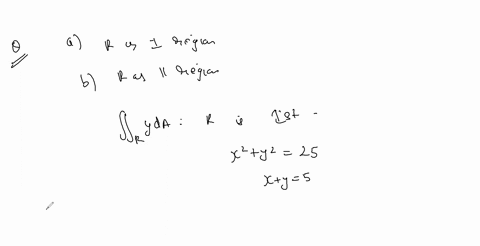 Q a) R as I region
b) R as II region
∬_R y dA : R is 1st -
x² + y² = 25
x + y = 5